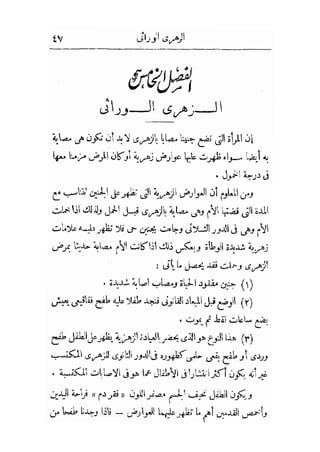 الزهرى الوراثى
٤٧
الفصل الخامس
الـــزهرى الـــوراثى
إن المرأة التى تضع جنينا مصابا بالزهرى لا بد أن تكون هى مصابة
به أيضا ســواء ظهرت عليها عوارض زهرية أو كان المرض مزمنا معها
فى درجة الخمول .
ومن المعلوم أن العوارض الزهرية التى تظهر على الجنين تتناسب مع
المدة التى قضتها الأم وهى مصابة بالزهرى قبــل الحمل ولذلك اذا حملت
الأم وهى فى الدور الثــلاثى وجاءت بجنين حى فلا تظهر عليــه علامات
زهرية شديدة الوطأة وبعكس ذلك اذا كانت الأم مصابة حديثا بمرض
الزهرى وحملت فقد يحصل ما يأتى :
(١) جنين مفقود الحياة ومصاب اصابة شديدة .
(٢) الوضع قبل الميعاد القانونى فنجد طفلا عليه طفح فقاقيعى يعيش
بضع ساعات فقط ثم يموت .
(٣) هذا النوع هو الذى يحضر بالعيادة الزهرية يظهر على الطفل طفح
وردى أو طفح بقعى حلمى كظهوره فى الدور الثانوى للزهرى المكتسب
غير أنه يكون أكثر انتشارا فى الأطفال عما هو فى الاصابات المكتسبة .
ويكون الطفل نحيف الجسم مصفر اللون « فقر دم » فراحة اليدين
وأخمص القدمين أهم ما تظهر عليهما العوارض — فاذا وجدنا طفحا من